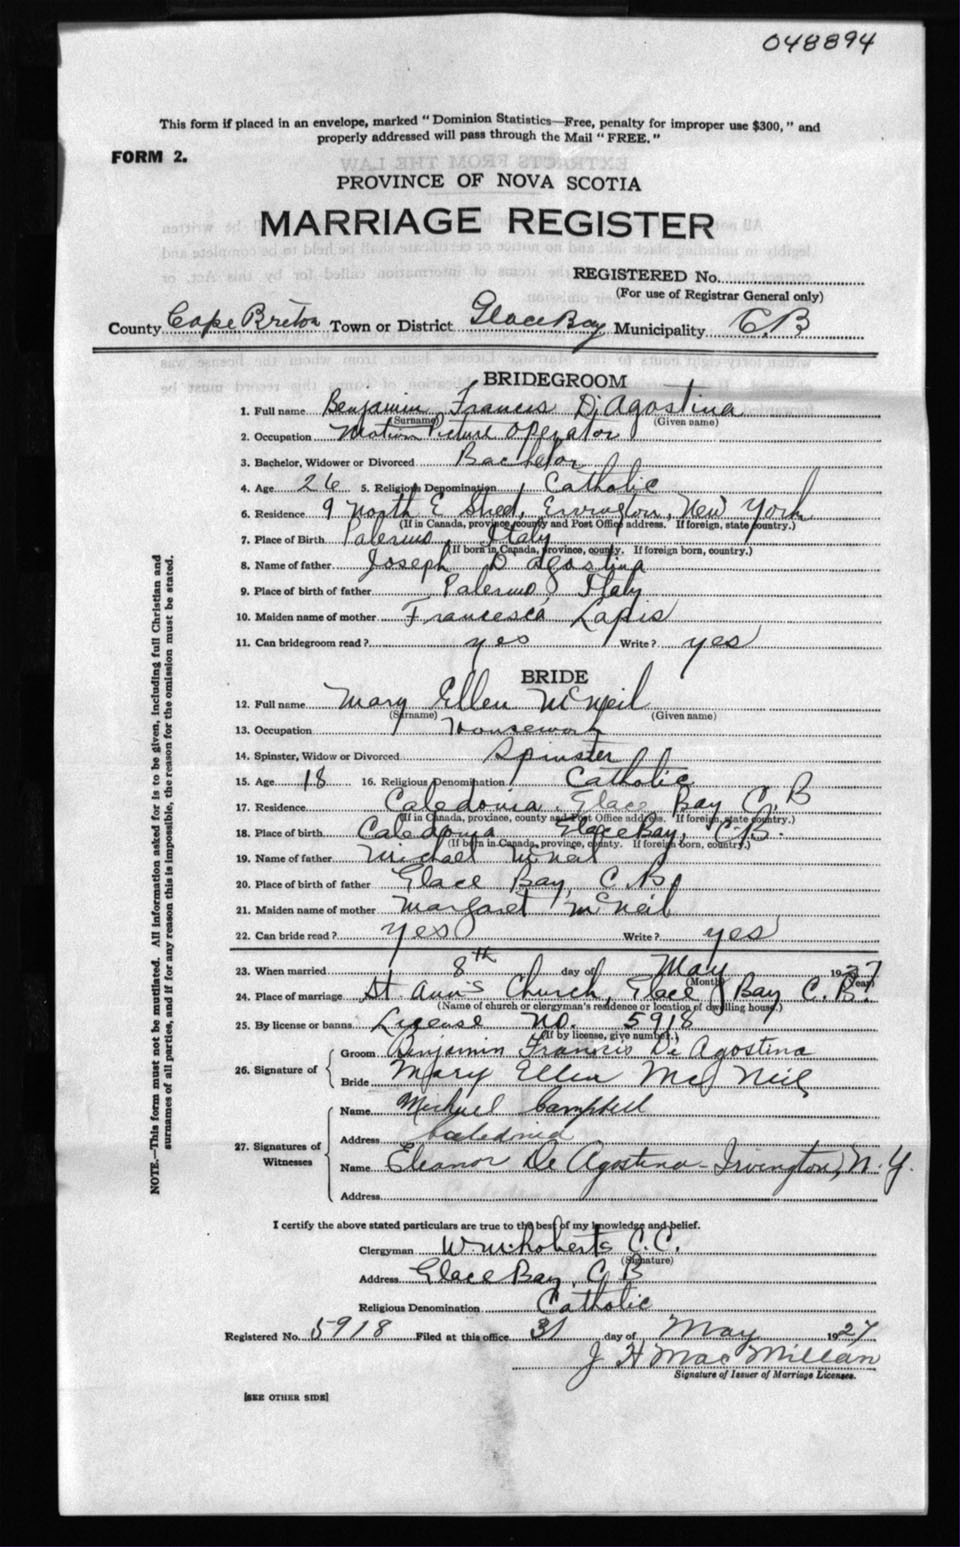 048894
This form if placed in an envelope, marked "Dominion Statistics—Free, penalty for improper use $300," and
properly addressed will pass through the Mail "FREE."
FORM 2.
PROVINCE OF NOVA SCOTIA
MARRIAGE REGISTER
REGISTERED No.
(For use of Registrar General only)
County Cape Breton Town or District Glace Bay Municipality C.B
BRIDEGROOM
1. Full name Benjamin Francis Di Agostina
(Surname) (Given name)
2. Occupation Motion Picture Operator
3. Bachelor, Widower or Divorced Bachelor
4. Age 26 5. Religious Denomination Catholic
6. Residence 9 North E Street, Ervington, New York
(If in Canada, province, county and Post Office address. If foreign, state country.)
7. Place of Birth Palermo, Italy
(If born in Canada, province, county. If foreign born, country.)
8. Name of father Joseph D'agostina
9. Place of birth of father Palermo, Italy
10. Maiden name of mother Francesca Lapis
11. Can bridegroom read? yes Write? yes
BRIDE
12. Full name Mary Ellen McNeil
(Surname) (Given name)
13. Occupation Housework
14. Spinster, Widow or Divorced Spinster
15. Age 18 16. Religious Denomination Catholic
17. Residence Caledonia Glace Bay C.B
(If in Canada, province, county and Post Office address. If foreign, state country.)
18. Place of birth Caledonia Glace Bay, C.B.
(If born in Canada, province, county. If foreign born, country.)
19. Name of father Michael McNeil
20. Place of birth of father Glace Bay, C.B.
21. Maiden name of mother Margaret McNeil
22. Can bride read? yes Write? yes
23. When married 8th day of May 1927
(Month) (Year)
24. Place of marriage St. Ann's Church, Glace Bay C.B.
(Name of church or clergyman's residence or location of dwelling house.)
25. By license or banns License No. 5918
(If by license, give number.)
26. Signature of
Groom Benjamin Francis De Agostina
Bride Mary Ellen McNeil
27. Signatures of Witnesses
Name Michael Campbell
Address Caledonia
Name Eleanor De Agostina - Irvington, N.Y.
Address
I certify the above stated particulars are true to the best of my knowledge and belief.
Clergyman W. M. Roberts C.C.
(Signature)
Address Glace Bay, C B
Religious Denomination Catholic
Registered No. 5918 Filed at this office 31 day of May 1927
J H MacMillan
Signature of Issuer of Marriage Licenses.
[SEE OTHER SIDE]
NOTE.—This form must not be mutilated. All information asked for is to be given, including full Christian and
surnames of all parties, and if for any reason this is impossible, the reason for the omission must be stated.